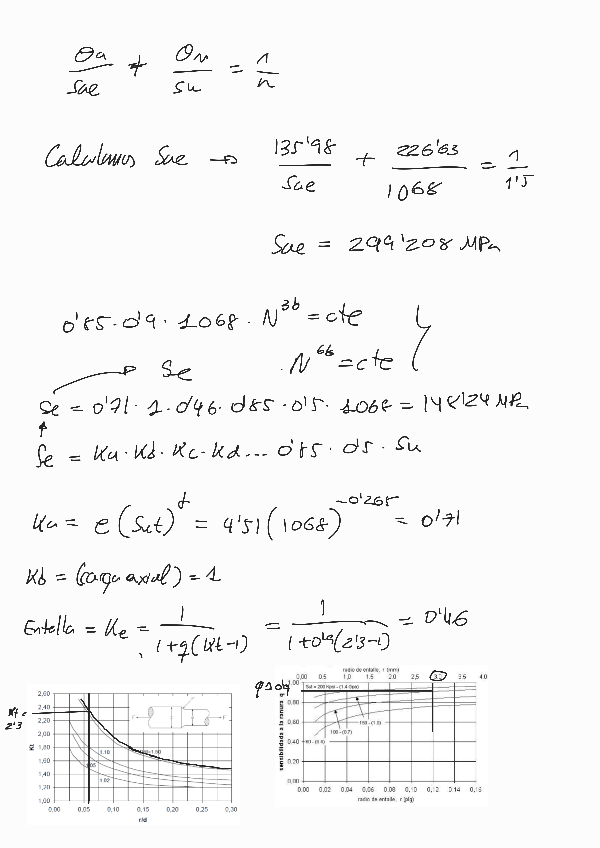 σa/Sae + σm/Su = 1/n
Calculamos Sae → 135'98/Sae + 226'63/1068 = 1/1'5
Sae = 299'208 MPa
0'85 · 0'9 · 1068 · N^3b = cte
Se · N^6b = cte
Se = 0'71 · 1 · 0'46 · 0'85 · 0'5 · 1068 = 148'24 MPa
Se = Ka · Kb · Kc · Kd ... 0'85 · 0'5 · Su
Ka = e (Sut)^f = 4'51 (1068)^-0'265 = 0'71
Kb = (carga axial) = 1
Entalla = Ke = 1/(1+q(Kt-1)) = 1/(1+0'9(2'3-1)) = 0'46
Kt = 2'3
2,60
2,40
2,20
2,00
1,80
1,60
1,40
1,20
1,00
Kt
1.10
D/d=1.50
1.05
1.02
F
F
0,00 0,05 0,10 0,15 0,20 0,25 0,30
r/d
radio de entalle, r (mm)
0.0 0.5 1.0 1.5 2.0 2.5 3.0 3.5 4.0
sensibilidad a la ranura q
1.00
0.80
0.60
0.40
0.20
0.00
Sut = 200 Kpsi - (1.4 Gpa)
150 - (1.0)
100 - (0.7)
60 - (0.4)
0.00 0.02 0.04 0.06 0.08 0.10 0.12 0.14 0.16
radio de entalle, r (plg)